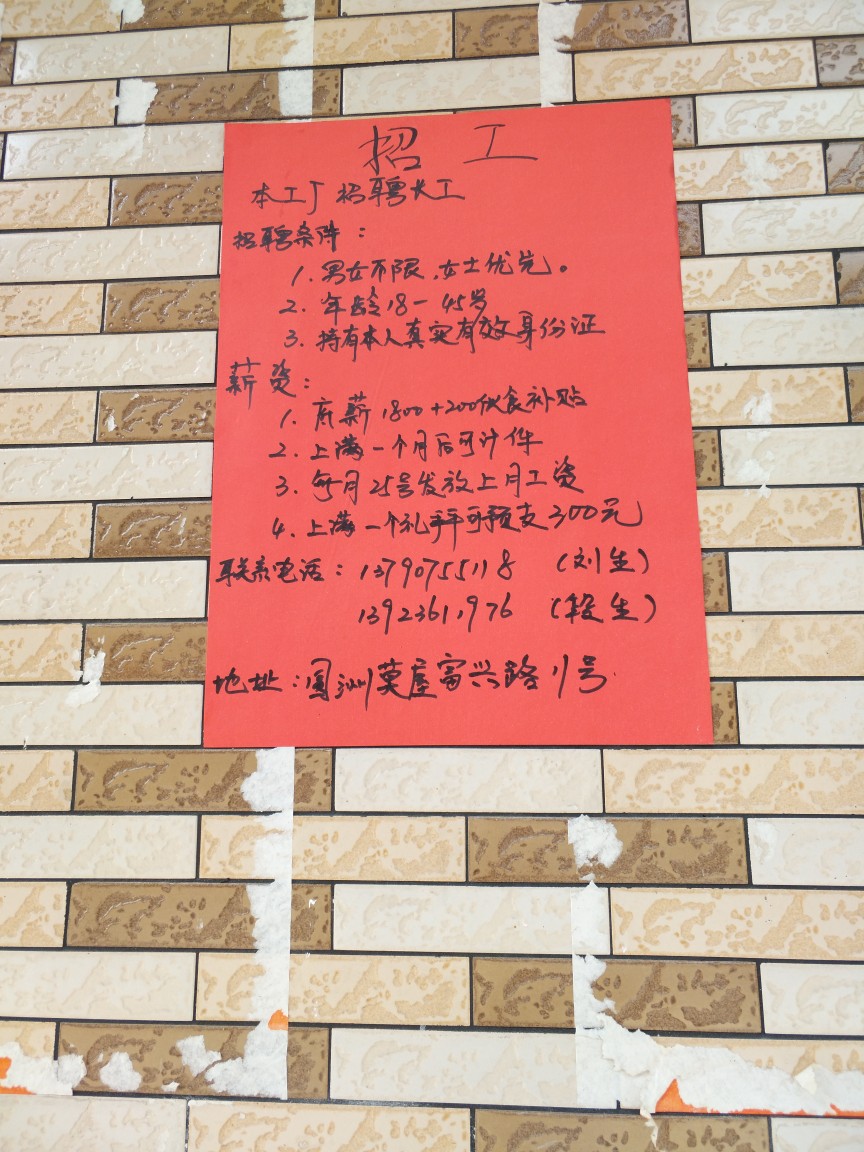 招工
本工厂招聘长工
招聘条件：
1.男女不限,女士优先。
2.年龄18-45号
3.持有本人真实有效身份证
薪资：
1.底薪1800+200伙食补贴
2.上满一个月后可计件
3.每月25号发放上月工资
4.上满一个礼拜可预支300元
联系电话：13790755118 (刘生)
13923611976 (段生)
地址：圆洲莫屋富兴路11号